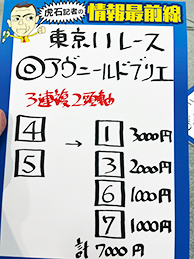 虎石記者の
情報最前線
東京11レース
◎アヴニールドブリエ
3連複2頭軸
4 → 1 3000円
5 3 2000円
6 1000円
7 1000円
計 7000円